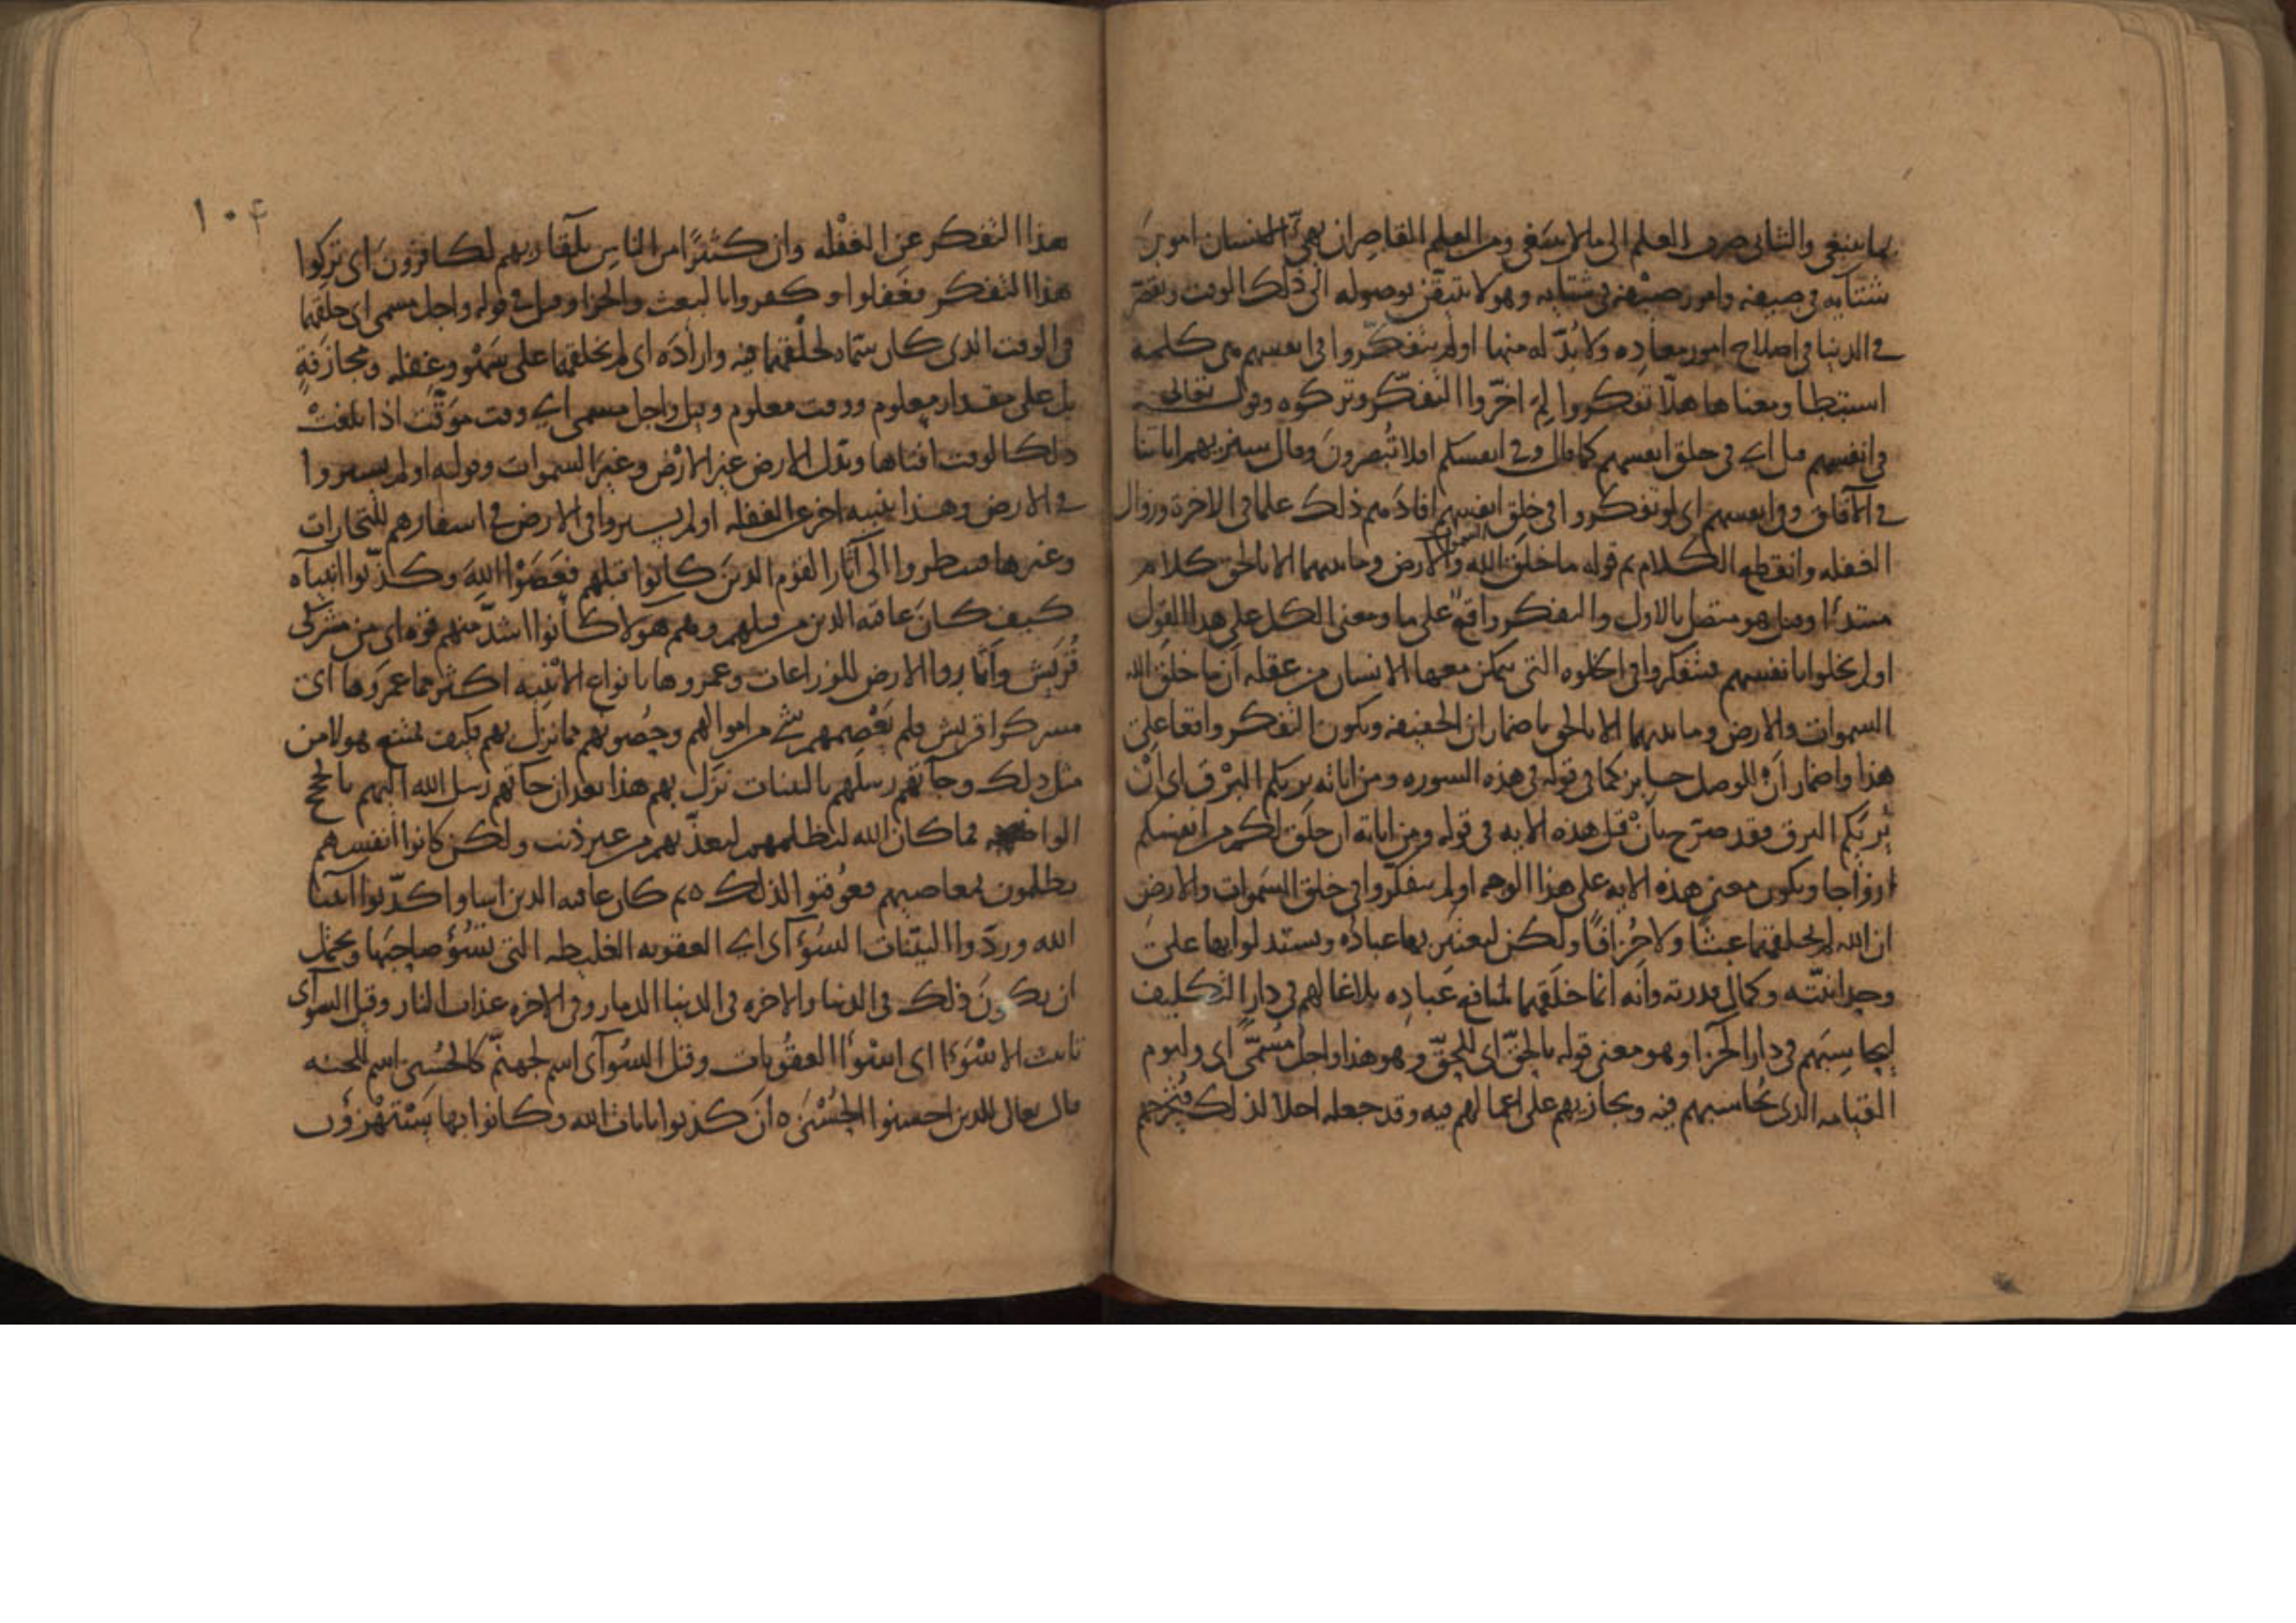 بما ينبغي والثاني صرف العلم الى ما لا ينبغي ومن العلم القاصر ان يهيّ الانسان امور
شتآيه في صيفه وامور صيفه في شتايه وهو لا يتيقّن بوصوله الى ذلك الوقت ويقصّر
في الدنيا في اصلاح امور معاده ولا بُدّ له منها اولم يتفكّروا في انفسهم هي كلمة
استبطا ومعناها هلّا تفكروا لِمَ اخّروا التفكّر وتركوه وقوله تعالى
في انفسهم قيل اي في خلق انفسهم كما قال وفي انفسكم افلا تُبصرونَ وقال سنريهم اياتنا
في الآفاق وفي انفسهم اي لو تفكروا في خلق انفسهم افادهم ذلك علما في الاخرة وزوال
الغفله وانقطع الكلام ثم قوله ما خلق الله السموات والارض وما بينهما الا بالحق كلام
مبتدأ وقيل هو متصل بالاول والتفكر واقع على ما ومعنى الكل على هذا القول
اولم يخلوا بانفسهم فيتفكروا في الخلوه التي يمكن معها الانسان من عقله ان ما خلق الله
السموات والارض وما بينهما الا بالحق باضمار ان الخفيفه ويكون التفكر واقعا على
هذا واضمار اَنْ للوصل جايز كما في قوله في هذه السوره ومن اياته يريكم البرق اى اَنْ
يُريكم البرق وقد صرّح بأنْ قبل هذه الايه في قوله ومن اياته ان خلق لكم من انفسكم
ازواجا ويكون معنى هذه الايه على هذا الوجه اولم يتفكّروا في خلق السَموات والارض
ان الله لم يخلقهما عبثا ولا جُزافًا ولكن ليعتبر بها عبادُه ويستدلوا بها على
وحدانيّته وكمال قدرته وأنه انما خلقهما لمنافع عباده بلاغا لهم في دار التكليف
ليحاسبهم في دار الجزا وهو معنى قوله بالحقّ اى للحقّ وهو هذا واجل مُسَمًّى اى وليوم
القيامه الذى يُحاسبهم فيه ويجازيهم على اعمالهم فيه وقد جعله اجلا لذلك
١٠٤
هذا التفكر عن الغفْله وان كثيرًا من الناس بلقآ ربهم لكافرونَ اى تركوا
هذا التفكر فغَفلوا وكفروا بالبعث والجزا وقيل في قوله واجل مسمى اى خلقهما
في الوقت الذى كان سمّاه لخلقهما فيه واراده اى لم يخلقهما على سَهْو وغفله ومجازفةٍ
بل على مقدار معلوم ووقت معلوم وقيل واجل مسمى اى وقت موَقّت اذا بلغتْ
ذلك الوقت افناها وبدّل الارض غير الارْض وغيرَ السموات وقوله اولم يسيروا
في الارض وهذا تنبيه اخر على الغفله اولم يسيروا في الارض في اسفارهم للتجارات
وغيرها فينظروا الى آثار القوم الذينَ كانوا قبلهم فعَصَوْا اللهَ وكذّبوا انبيآه
كيف كانَ عاقبه الذين من قبلهم وهم هولا كانُوا اشدّ منهم قوه اى من مشركى
قُرَيش وأثاروا الارض للزراعات وعمروها بانواع الابْنيه اكثر مما عمَروها اى
مشركوا قريش فلم يَعْصمهم شئ من اموالهم وحُصُونهم مما نزل بهم فكيف يمتنع هولا من
مثل ذلك وجآتهم رسلهم بالبينات نزل بهم هذا بعد ان جآتهم رسل الله اليهم بالحجج
الواضحه فما كان الله ليظلمهم ليعذّبهم من غير ذنب ولكن كانوا انفسهم
يظلمون بمعاصيهم فعُوقبُوا لذلك ه ثم كان عاقبه الذين اساوا كذّبوا انبيآ
الله وردّوا البيّنات السُوآى اى العقوبه الغليظه التي تسُؤ صاحبَها ويحتمل
ان يكونَ ذلك في الدنيا والاخره في الدنيا الدمار وفي الاخره عذاب النار وقيل السوآى
تانيث الاسْوَءِ اى اسْوأ العقُوبات وقيل السُوآى اسم جهنّم كالحُسْنى اسم للجنه
قال تعالى للذين احسنوا الحُسْنَى ه ان كذبوا بايات الله وكانوا بها يَسْتَهْزؤن